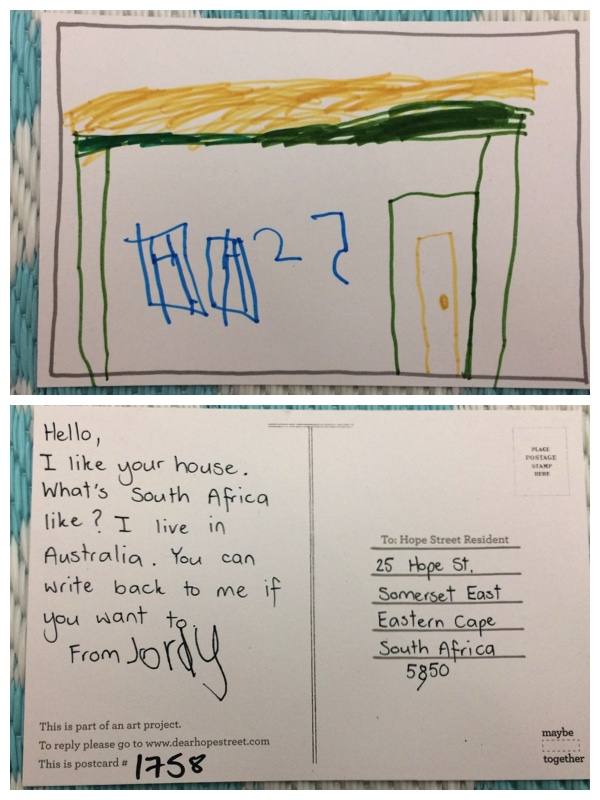 2
Hello,
I like your house.
What's South Africa
like? I live in
Australia. You can
write back to me if
you want to.
From Jordy
This is part of an art project.
To reply please go to www.dearhopestreet.com
This is postcard # 1758
PLACE
POSTAGE
STAMP
HERE
To: Hope Street Resident
25 Hope St.
Somerset East
Eastern Cape
South Africa
5850
maybe
together